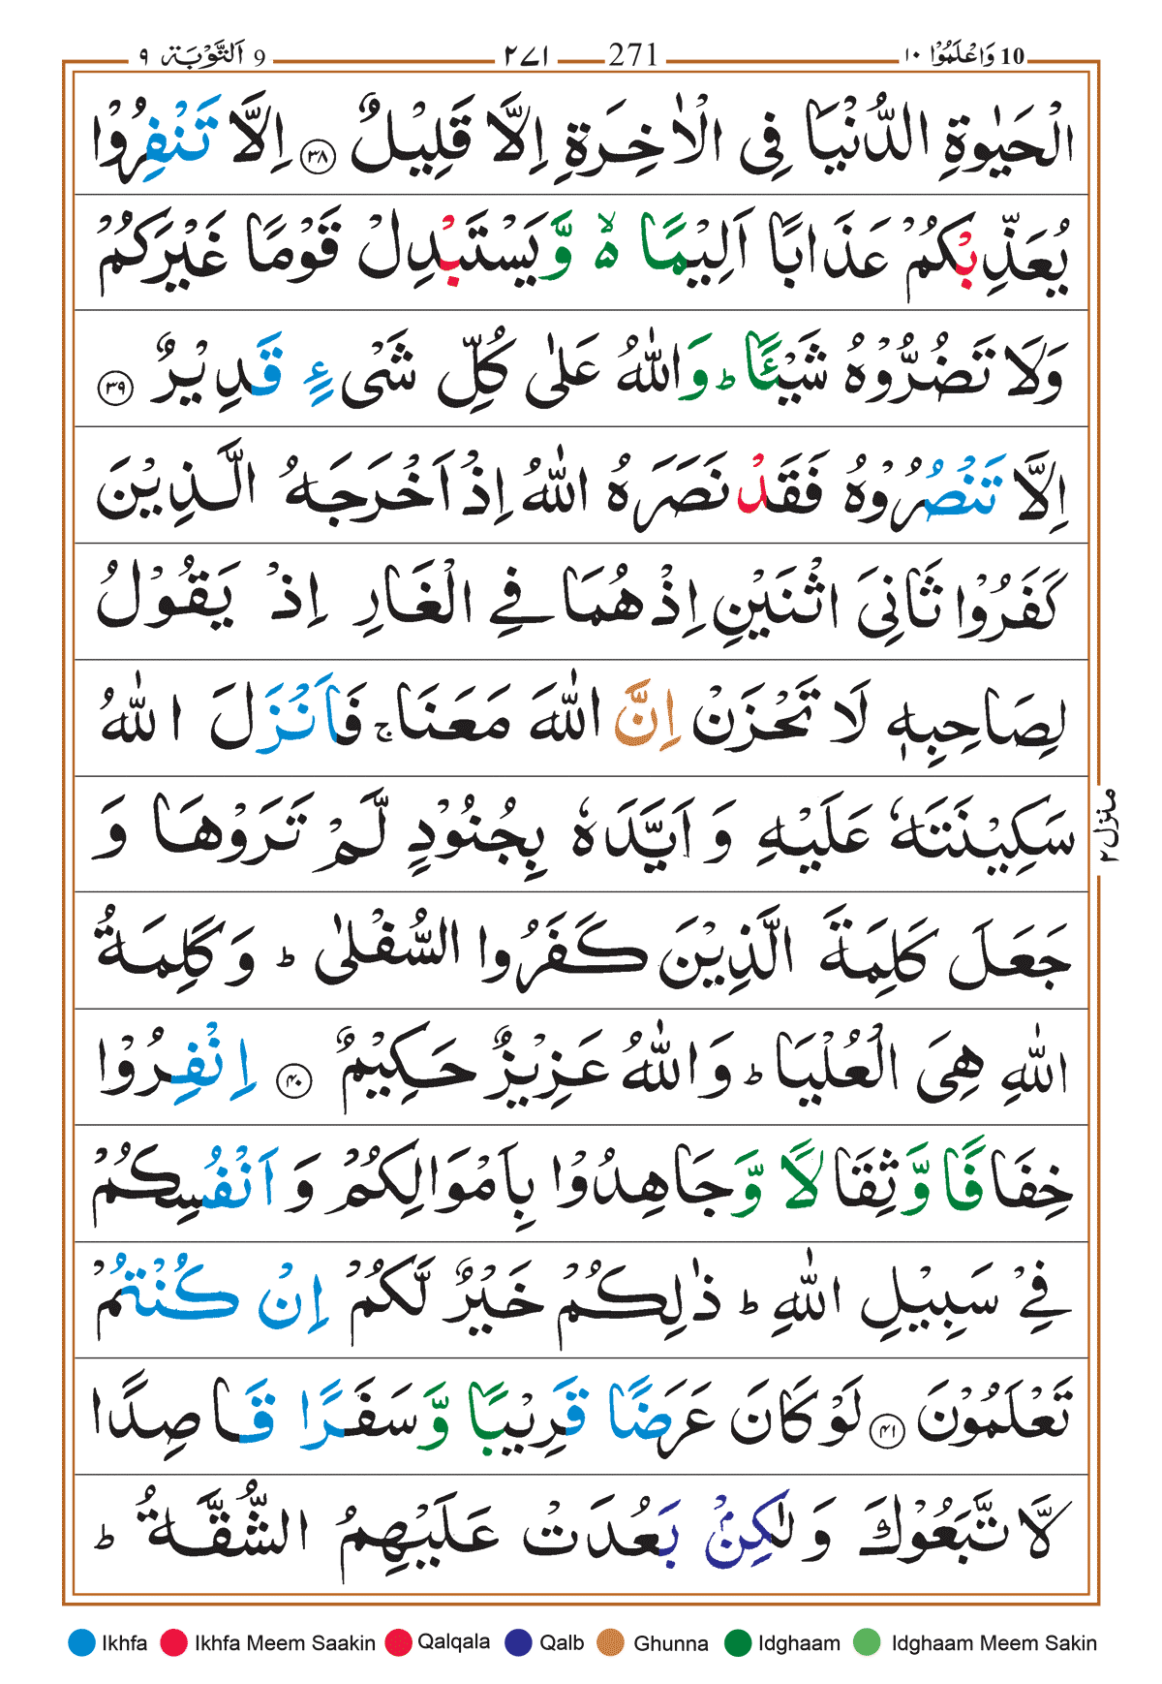 9 اَلتَّوْبَة ٩
٢٧١ 271
10 وَاعْلَمُوْٓا ١٠
الْحَيٰوةِ الدُّنْيَا فِى الْاٰخِرَةِ اِلَّا قَلِيْلٌ ٣٨ اِلَّا تَنْفِرُوْا
يُعَذِّبْكُمْ عَذَابًا اَلِيْمًا ۙ۬ وَّيَسْتَبْدِلْ قَوْمًا غَيْرَكُمْ
وَلَا تَضُرُّوْهُ شَيْـًٔا ؕ وَاللّٰهُ عَلٰى كُلِّ شَىْءٍ قَدِيْرٌ ٣٩
اِلَّا تَنْصُرُوْهُ فَقَدْ نَصَرَهُ اللّٰهُ اِذْ اَخْرَجَهُ الَّذِيْنَ
كَفَرُوْا ثَانِىَ اثْنَيْنِ اِذْ هُمَا فِى الْغَارِ اِذْ يَقُوْلُ
لِصَاحِبِهٖ لَا تَحْزَنْ اِنَّ اللّٰهَ مَعَنَا ۚ فَاَنْزَلَ اللّٰهُ
سَكِيْنَتَهٗ عَلَيْهِ وَ اَيَّدَهٗ بِجُنُوْدٍ لَّمْ تَرَوْهَا وَ
جَعَلَ كَلِمَةَ الَّذِيْنَ كَفَرُوا السُّفْلٰى ؕ وَكَلِمَةُ
اللّٰهِ هِىَ الْعُلْيَا ؕ وَاللّٰهُ عَزِيْزٌ حَكِيْمٌ ٤٠ اِنْفِرُوْا
خِفَافًا وَّثِقَالًا وَّجَاهِدُوْا بِاَمْوَالِكُمْ وَ اَنْفُسِكُمْ
فِىْ سَبِيْلِ اللّٰهِ ؕ ذٰلِكُمْ خَيْرٌ لَّكُمْ اِنْ كُنْتُمْ
تَعْلَمُوْنَ ٤١ لَوْ كَانَ عَرَضًا قَرِيْبًا وَّسَفَرًا قَاصِدًا
لَّا تَّبَعُوْكَ وَلٰكِنْۢ بَعُدَتْ عَلَيْهِمُ الشُّقَّةُ ؕ
منزل ٢
Ikhfa Ikhfa Meem Saakin Qalqala Qalb Ghunna Idghaam Idghaam Meem Sakin